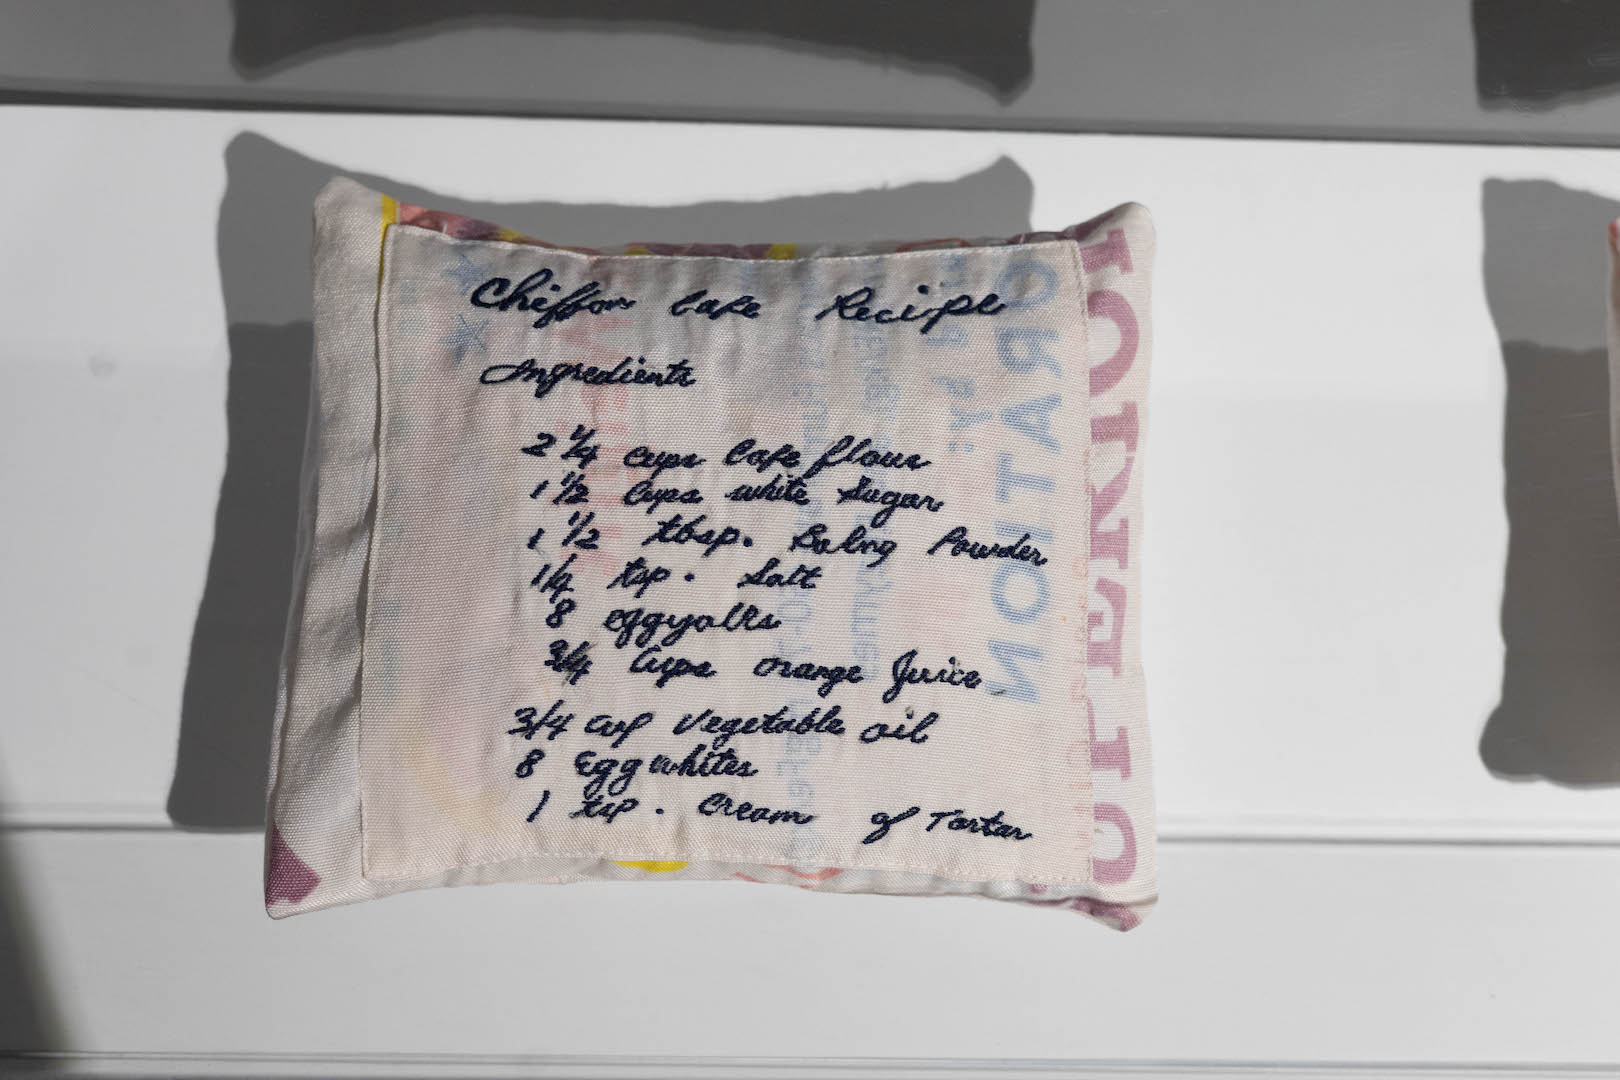 Chiffon Cake Recipe
Ingredients
2 1/4 cups Cake flour
1 1/2 Cups white Sugar
1 1/2 tbsp. Baking Powder
1/4 tsp. Salt
8 eggyolks
3/4 Cups orange Juice
3/4 cup vegetable oil
8 Egg whites
1 tsp. Cream of Tartar